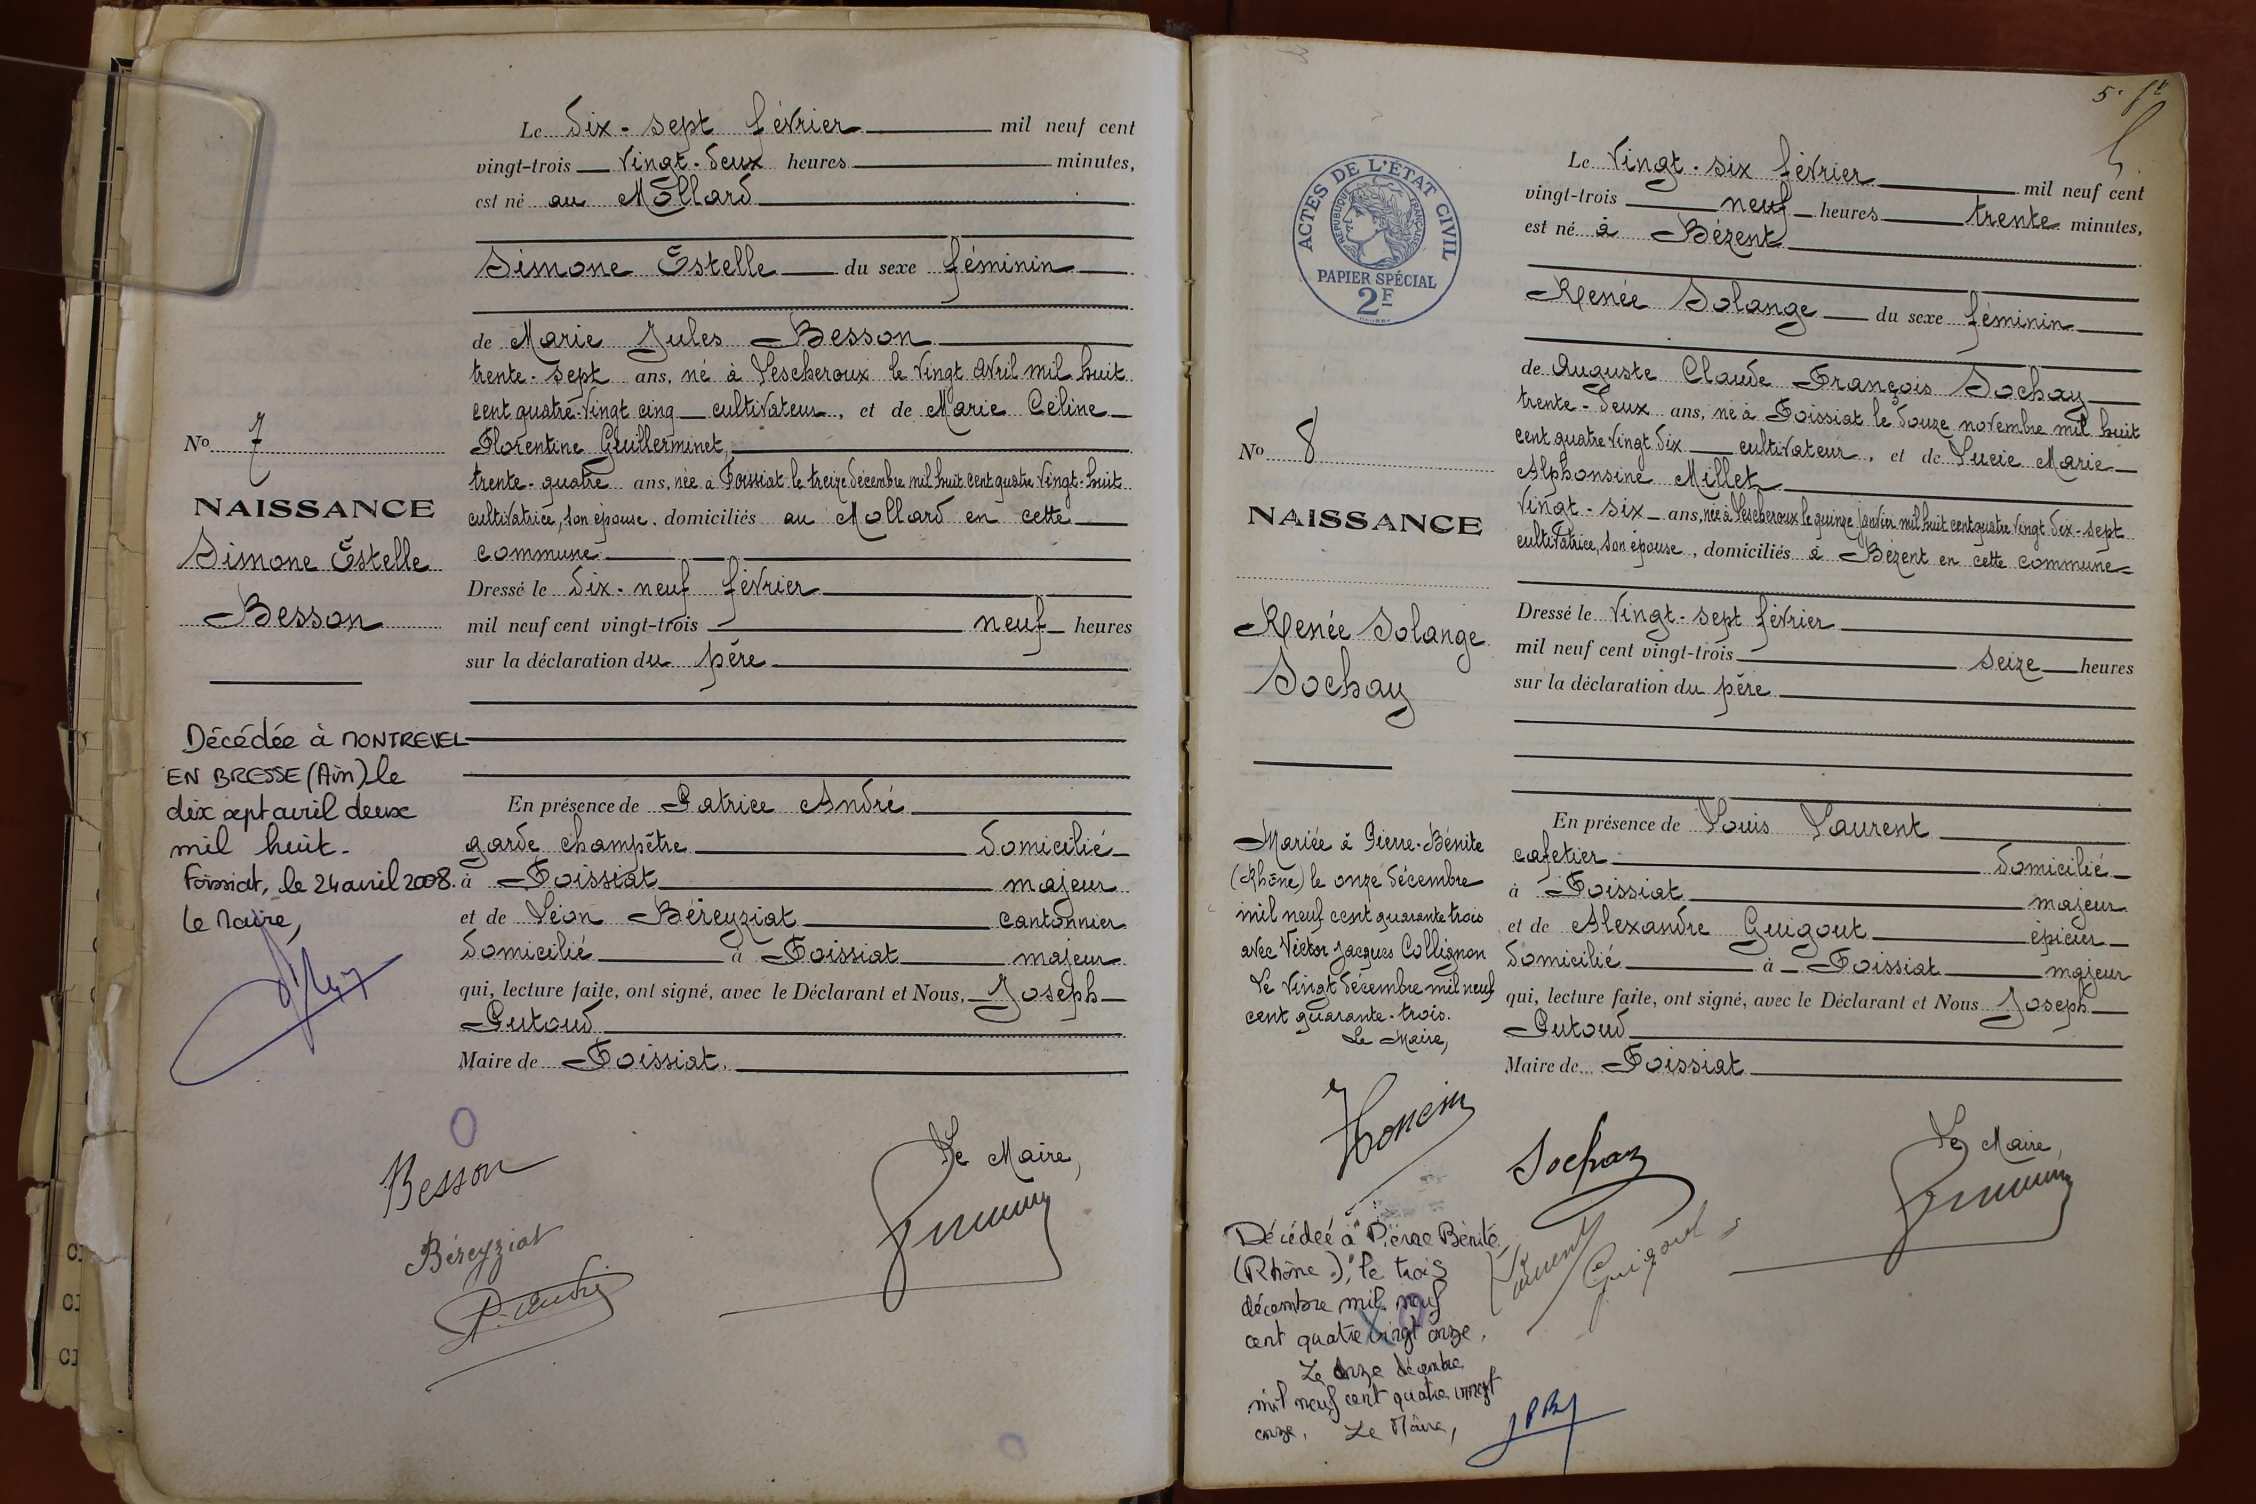 Le dix-sept février mil neuf cent
vingt-trois vingt-deux heures minutes,
est né au Mollard
Simone Estelle du sexe féminin
de Marie Jules Besson
trente-sept ans, né à Lescheroux le vingt avril mil huit
cent quatre-vingt cinq cultivateur, et de Marie Céline
Florentine Guillerminet,
trente-quatre ans, née à Foissiat le treize décembre mil huit cent quatre vingt-huit
cultivatrice, son épouse, domiciliés au Mollard en cette
commune
Dressé le dix-neuf février
mil neuf cent vingt-trois neuf heures
sur la déclaration du père
En présence de Patrice André
garde champêtre domicilié
à Foissiat majeur
et de Léon Béreyziat cantonnier
domicilié à Foissiat majeur
qui, lecture faite, ont signé, avec le Déclarant et Nous, Joseph
Putoud
Maire de Foissiat.
No 7
NAISSANCE
Simone Estelle
Besson
Décédée à MONTREVEL
EN BRESSE (Ain) le
dix sept avril deux
mil huit.
Foissiat, le 24 avril 2008.
Le Maire,
Besson
Béreyziat
P. André
Le Maire,
5.
Le vingt-six février mil neuf cent
vingt-trois neuf heures trente minutes,
est né à Bézent
Renée Solange du sexe féminin
de Auguste Claude François Sochay
trente-deux ans, né à Foissiat le douze novembre mil huit
cent quatre vingt dix cultivateur, et de Lucie Marie
Alphonsine Millet
vingt-six ans, née à Lescheroux le quinze janvier mil huit cent quatre vingt dix-sept
cultivatrice, son épouse, domiciliés à Bézent en cette commune
Dressé le vingt-sept février
mil neuf cent vingt-trois seize heures
sur la déclaration du père
En présence de Louis Laurent
cafetier domicilié
à Foissiat majeur
et de Alexandre Guigout épicier
domicilié à Foissiat majeur
qui, lecture faite, ont signé, avec le Déclarant et Nous Joseph
Putoud
Maire de Foissiat
ACTES DE L'ÉTAT CIVIL
RÉPUBLIQUE FRANÇAISE
PAPIER SPÉCIAL
2F
No 8
NAISSANCE
Renée Solange
Sochay
Mariée à Pierre-Bénite
(Rhône) le onze décembre
mil neuf cent quarante trois
avec Victor Jacques Collignon
Le vingt décembre mil neuf
cent quarante-trois.
Le Maire,
Décédée à "Pierre Bénite
(Rhône)", le trois
décembre mil neuf
cent quatre vingt onze.
Le onze décembre
mil neuf cent quatre vingt
onze. Le Maire,
Sochay
Laurent
Guigout
Le Maire,